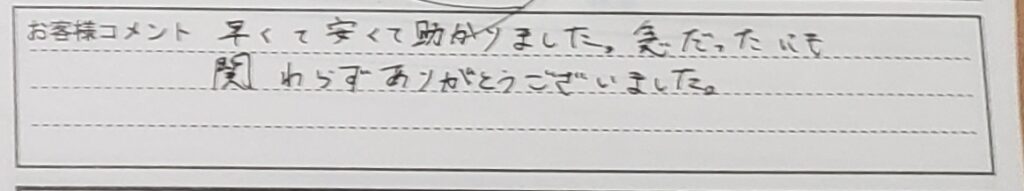 お客様コメント 早くて安くて助かりました。急だったにも
関わらずありがとうございました。